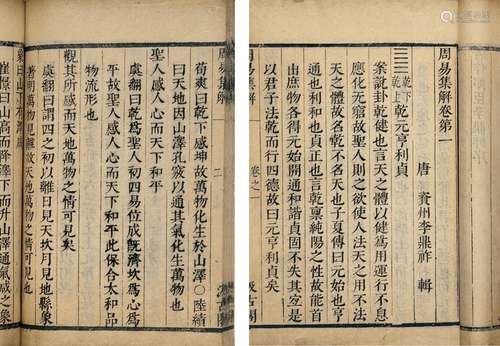 周易集解卷第一
唐 資州李鼎祚 輯
乾下
乾上
乾元亨利貞
案說卦乾健也言天之體以健為用運行不息
應化无窮故聖人則之欲使人法天之用不法
天之體故名乾不名天也子夏傳曰元始也亨
通也利和也貞正也言乾稟純陽之性故能首
出庶物各得元始開通和諧貞固不失其宜是
以君子法乾而行四德故曰元亨利貞矣
周易集解 卷之一 汲古閣
周易集解 二 汲古閣
荀爽曰乾下感坤故萬物化生於山澤○陸績
曰天地因山澤孔竅以通其氣化生萬物也
聖人感人心而天下和平
虞翻曰乾為聖人初四易位成旣濟坎為心為
平故聖人感人心而天下和平此保合太和品
物流形也
觀其所感而天地萬物之情可見矣
虞翻曰謂四之初以離日見天坎月見地縣象
著明萬物見離故天地萬物之情可見也
象曰山上有澤咸
崔憬曰山高而降澤下而升山澤通氣咸之象